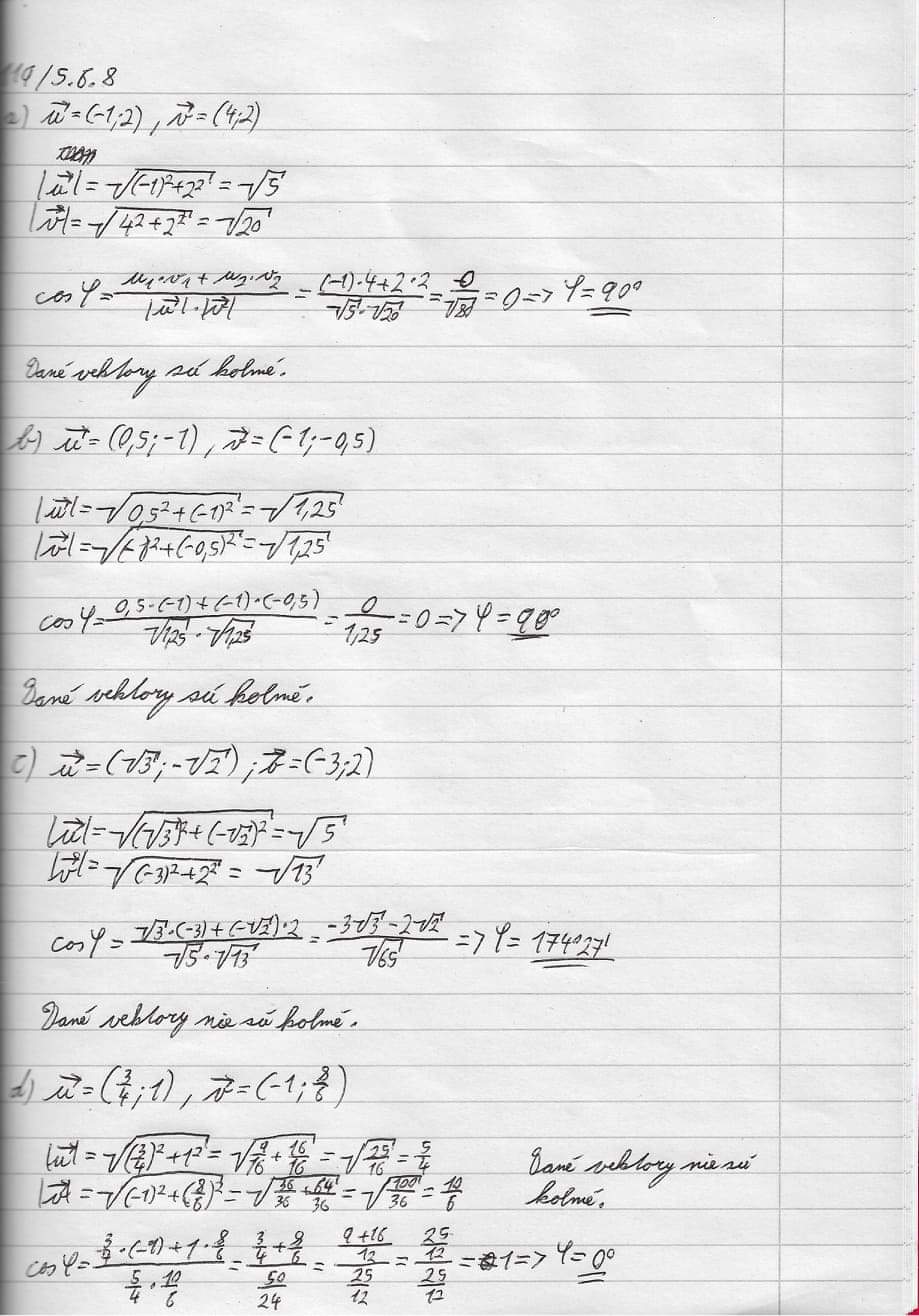 119/5.6.8
a) u⃗=(-1;2), v⃗=(4;2)
|u⃗|=√((-1)²+2²)=√5
|v⃗|=√(4²+2²)=√20
cos φ=(u₁·v₁+u₂·v₂)/(|u⃗|·|v⃗|)=((-1)·4+2·2)/(√5·√20)=0/√80=0=>φ=90°
Dané vektory sú kolmé.
b) u⃗=(0,5;-1), v⃗=(-1;-0,5)
|u⃗|=√(0,5²+(-1)²)=√1,25
|v⃗|=√((-1)²+(-0,5)²)=√1,25
cos φ=(0,5·(-1)+(-1)·(-0,5))/(√1,25·√1,25)=0/1,25=0=>φ=90°
Dané vektory sú kolmé.
c) u⃗=(√3;-√2); v⃗=(-3;2)
|u⃗|=√((√3)²+(-√2)²)=√5
|v⃗|=√((-3)²+2²)=√13
cos φ=(√3·(-3)+(-√2)·2)/(√5·√13)=(-3√3-2√2)/√65=>φ=174°27'
Dané vektory nie sú kolmé.
d) u⃗=(3/4;1), v⃗=(-1;8/6)
|u⃗|=√((3/4)²+1²)=√(9/16+16/16)=√(25/16)=5/4
|v⃗|=√((-1)²+(8/6)²)=√(36/36+64/36)=√(100/36)=10/6
Dané vektory nie sú
kolmé.
cos φ=(3/4·(-1)+1·8/6)/(5/4·10/6)=(3/4+8/6)/(50/24)=((9+16)/12)/(25/12)=(25/12)/(25/12)=1=>φ=0°